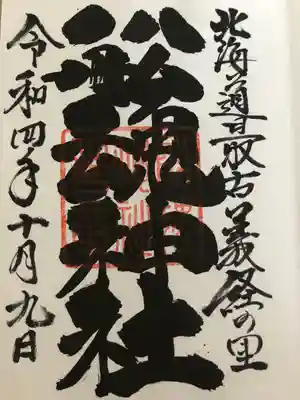 北海道最古義経の里
舩魂神社
令和四年十月九日